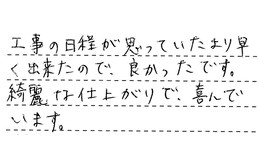 工事の日程が思っていたより早
く出来たので、良かったです。
綺麗な仕上がりで、喜んで
います。